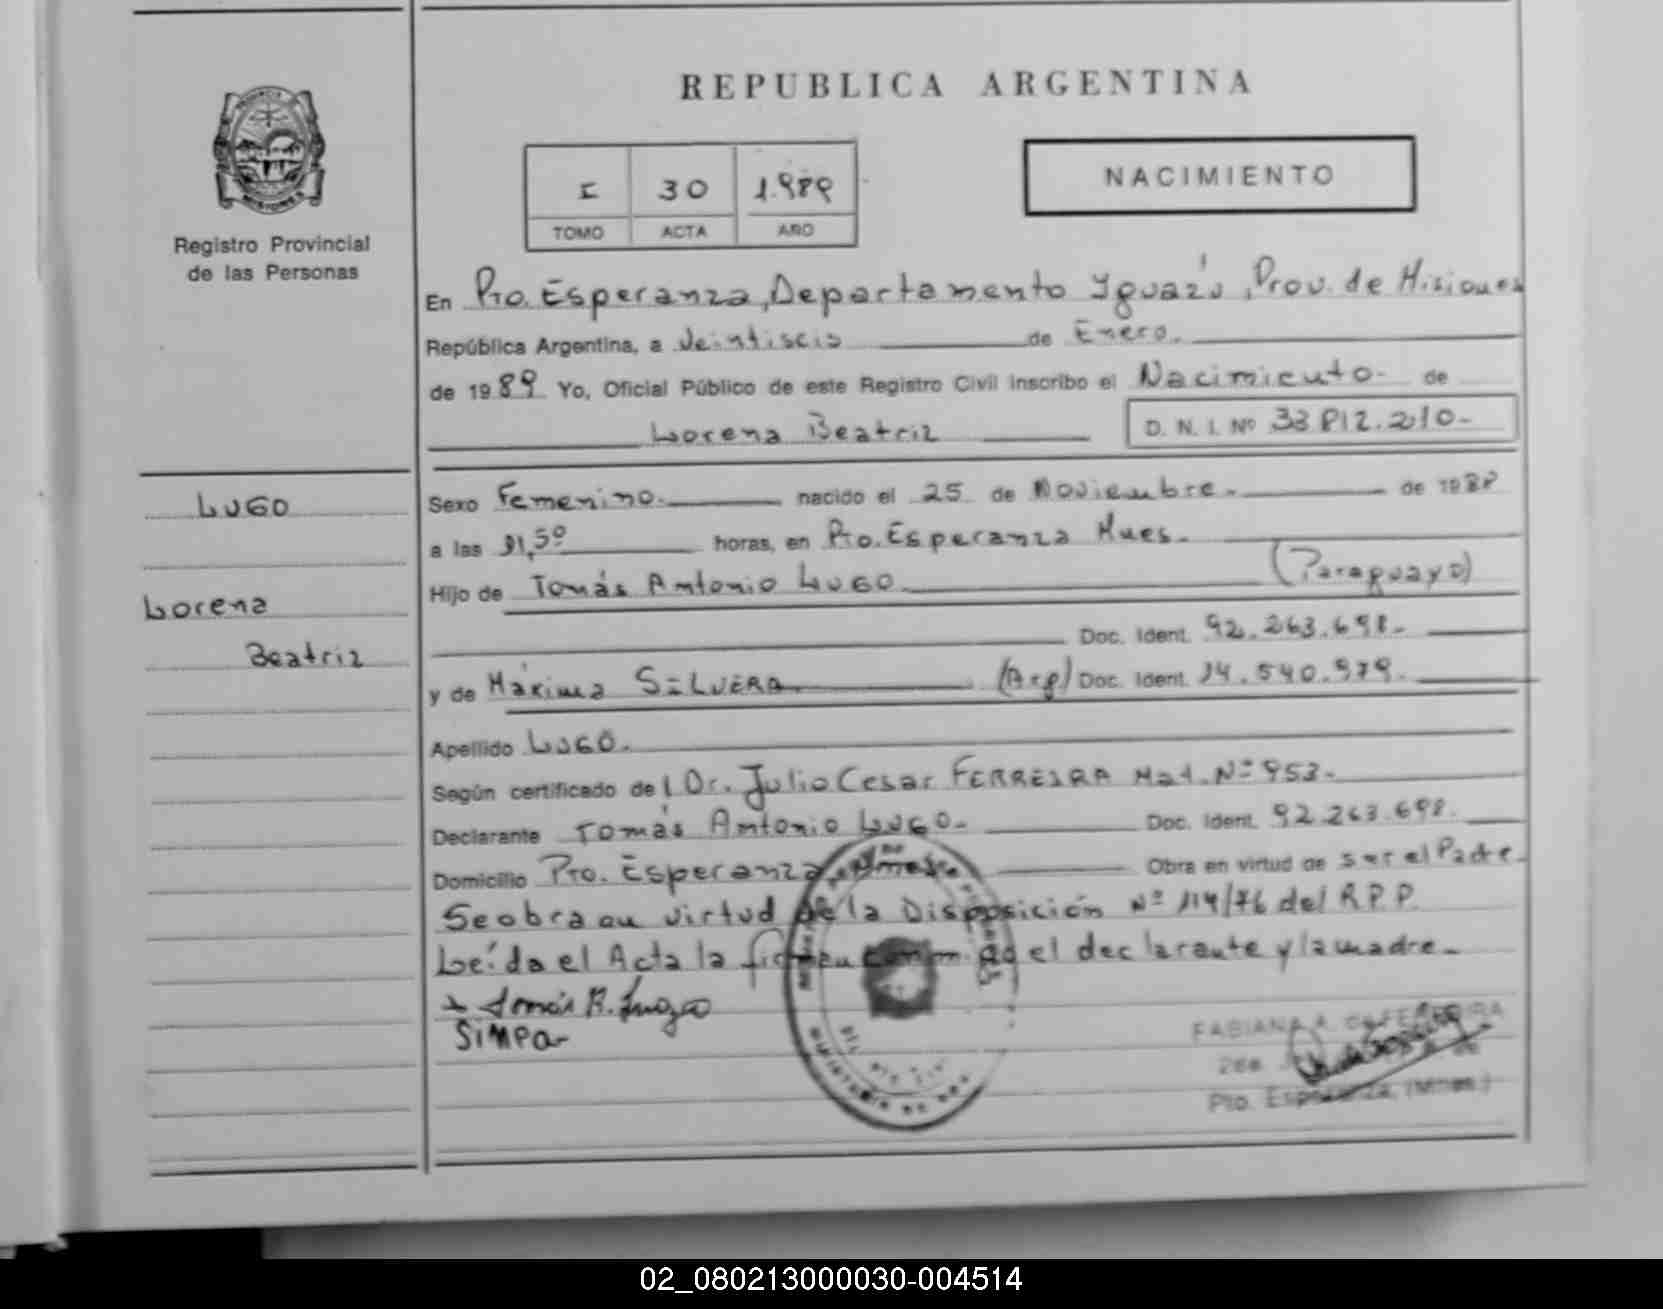 REPUBLICA ARGENTINA
I 30 1.989
TOMO ACTA AÑO
NACIMIENTO
Registro Provincial
de las Personas
En Pto. Esperanza, Departamento Yguazú, Prov. de Misiones
República Argentina, a Veintiseis de Enero.
de 1989 Yo, Oficial Público de este Registro Civil inscribo el Nacimiento- de
Lorena Beatriz D. N. I. Nº 33.812.210-
LUGO
Lorena
Beatriz
Sexo Femenino. nacido el 25 de Noviembre. de 1988
a las 21,50 horas, en Pto. Esperanza Mnes.
Hijo de Tomás Antonio LUGO. (Paraguayo)
Doc. Ident. 92.263.698.-
y de Máxima SILVERA (Arg) Doc. Ident. 14.540.979.
Apellido LUGO.
Según certificado del Dr. Julio Cesar FERREIRA Mat. Nº 953.-
Declarante Tomás Antonio LUGO.- Doc. Ident. 92.263.698.
Domicilio Pto. Esperanza, Mnes. Obra en virtud de ser el Padre.
Se obra en virtud de la Disposición Nº 114/76 del R.P.P.
Leída el Acta la firman conmigo el declarante y la madre.-
Pto. Esperanza, (Mnes.)
02_080213000030-004514